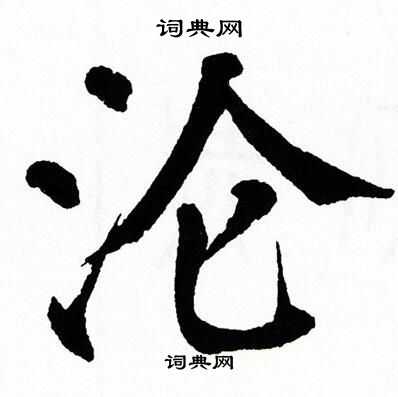 词典网
沦
词典网